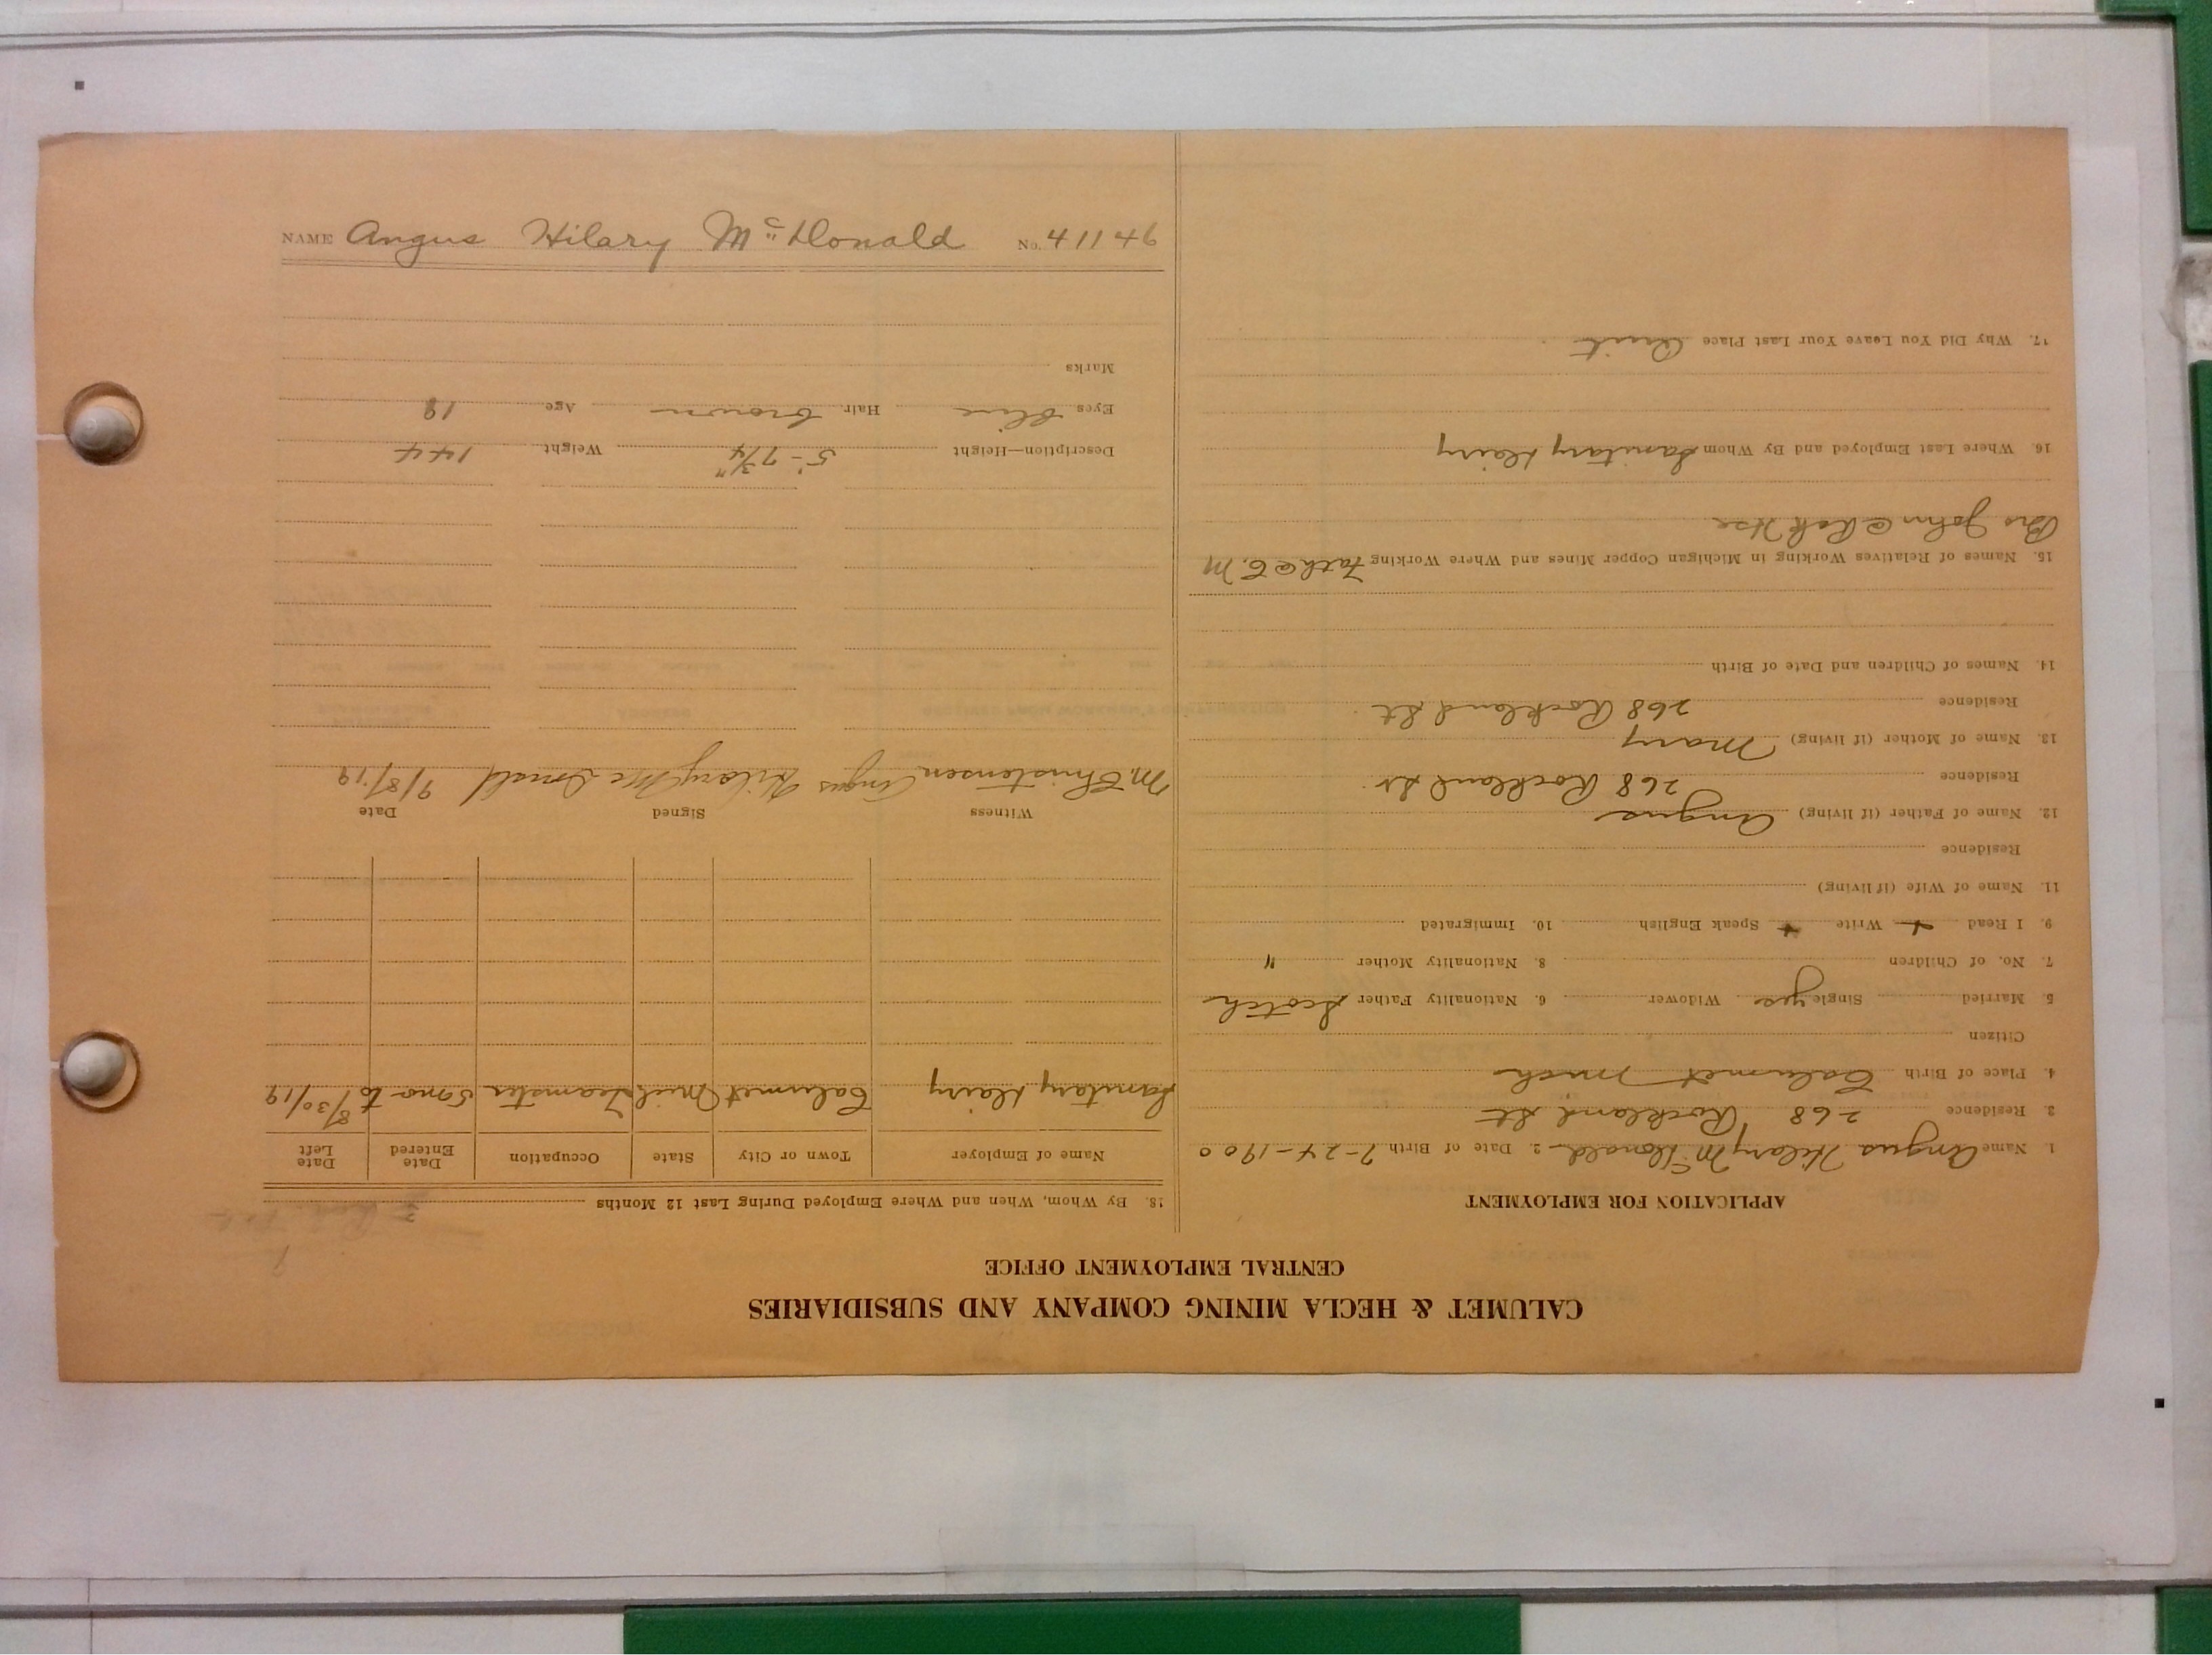 CALUMET & HECLA MINING COMPANY AND SUBSIDIARIES
CENTRAL EMPLOYMENT OFFICE
APPLICATION FOR EMPLOYMENT
1. Name Angus Hilary McDonald 2. Date of Birth 7-24-1900
3. Residence 268 Rockland St
4. Place of Birth Calumet Mich
Citizen
5. Married Single yes Widower 6. Nationality Father Scotch
7. No. of Children 8. Nationality Mother "
9. I Read + Write + Speak English 10. Immigrated
11. Name of Wife (if living)
Residence
12. Name of Father (if living) Angus
Residence 268 Rockland St.
13. Name of Mother (if living) Mary
Residence 268 Rockland St.
14. Names of Children and Date of Birth
15. Names of Relatives Working in Michigan Copper Mines and Where Working Fath @ C. M
Bro John @ Rock Hse
16. Where Last Employed and By Whom Sanitary Dairy
17. Why Did You Leave Your Last Place Quit
18. By Whom, When and Where Employed During Last 12 Months
Name of Employer Town or City State Occupation Date Entered Date Left
Sanitary Dairy Calumet Mich Teamster 5 mo to 8/30/19
Witness Signed Date
M. Christensen Angus Hilary Mc Donald 9/8/19
Description—Height 5'-7 3/4" Weight 144
Eyes blue Hair brown Age 19
Marks
NAME Angus Hilary McDonald No. 41146